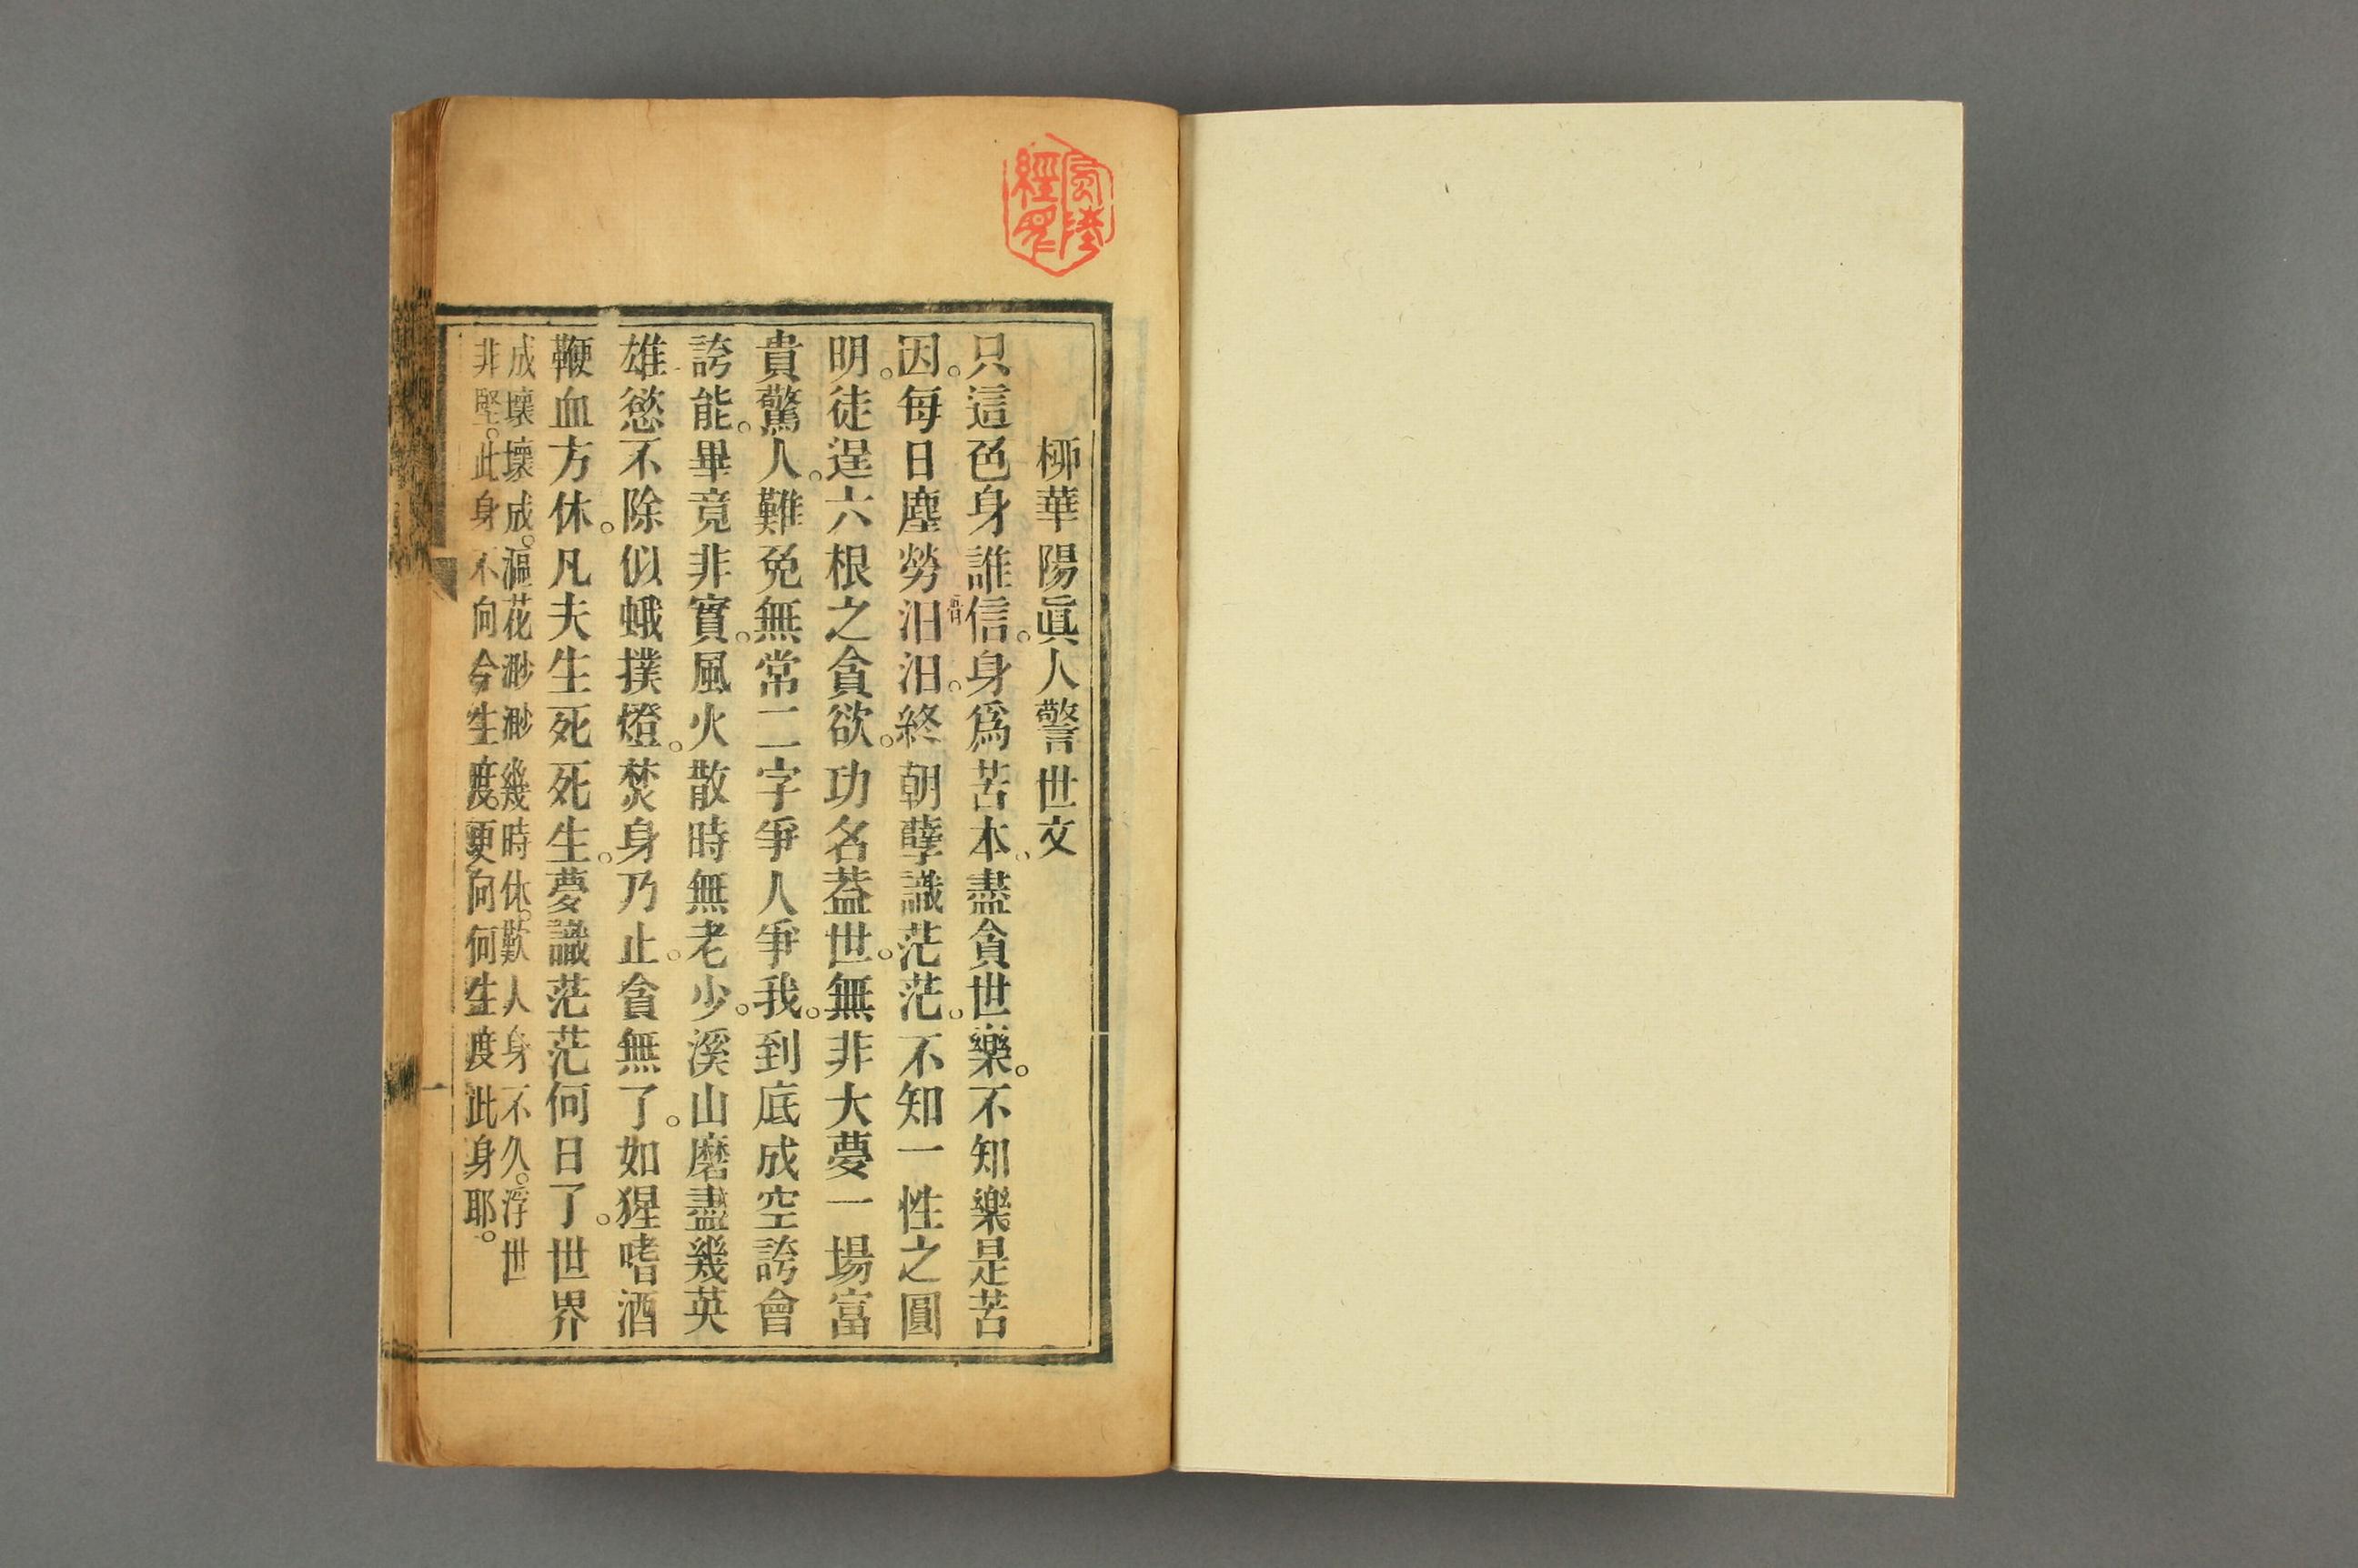 柳華陽眞人警世文
只這色身誰信。身爲苦本。盡貪世樂。不知樂是苦
因。每日塵勞汨汨。終朝孽識茫茫。不知一性之圓
音骨
明。徒逞六根之貪欲。功名葢世。無非大夢一場富
貴驚人。難免無常二字爭人爭我。到底成空誇會
誇能。畢竟非實。風火散時無老少。溪山磨盡幾英
雄慾不除似蛾撲燈。焚身乃止。貪無了。如猩嗜酒
鞭血方休。凡夫生死死生。夢識茫茫何日了。世界
成壞壞成。漚花渺渺幾時休。歎人身不久。浮世
非堅。此身不向今生度。更向何生度此身耶。
一
經